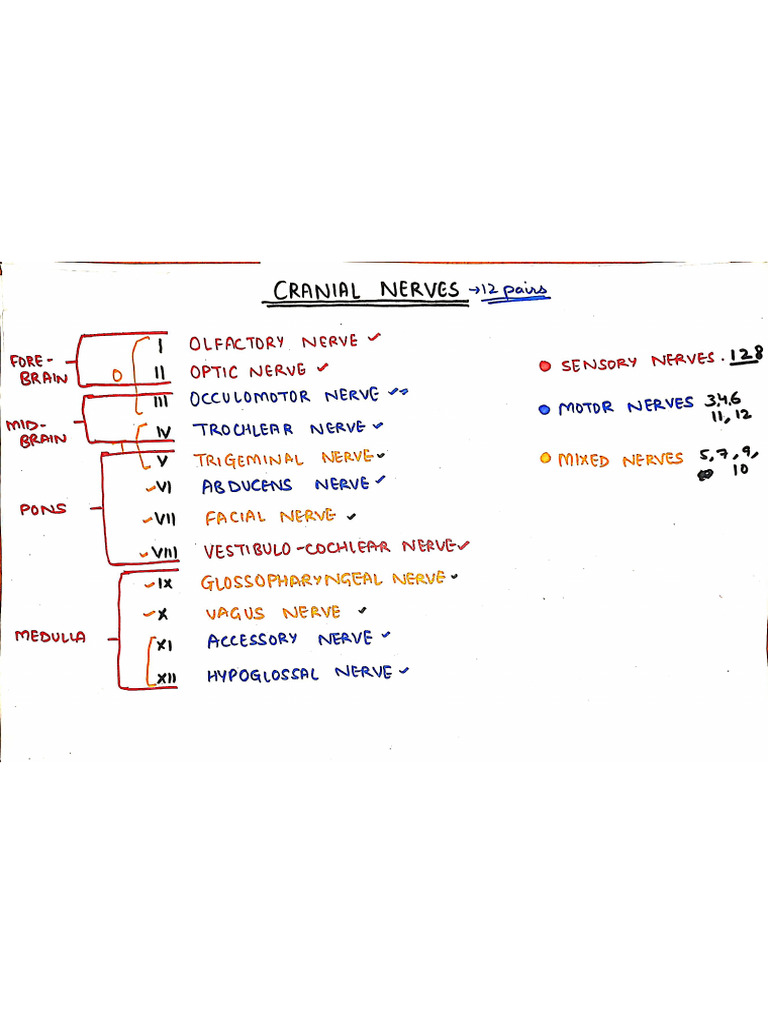 CRANIAL NERVES →12 pairs
FORE-
BRAIN
O
I OLFACTORY NERVE ✓
II OPTIC NERVE ✓
MID-
BRAIN
III OCCULOMOTOR NERVE ✓
IV TROCHLEAR NERVE ✓
PONS
V TRIGEMINAL NERVE ✓
✓VI ABDUCENS NERVE ✓
✓VII FACIAL NERVE ✓
✓VIII VESTIBULO-COCHLEAR NERVE ✓
MEDULLA
✓IX GLOSSOPHARYNGEAL NERVE ✓
✓X VAGUS NERVE ✓
XI ACCESSORY NERVE ✓
XII HYPOGLOSSAL NERVE ✓
SENSORY NERVES. 128
MOTOR NERVES 3,4,6
11, 12
MIXED NERVES 5,7,9,
10